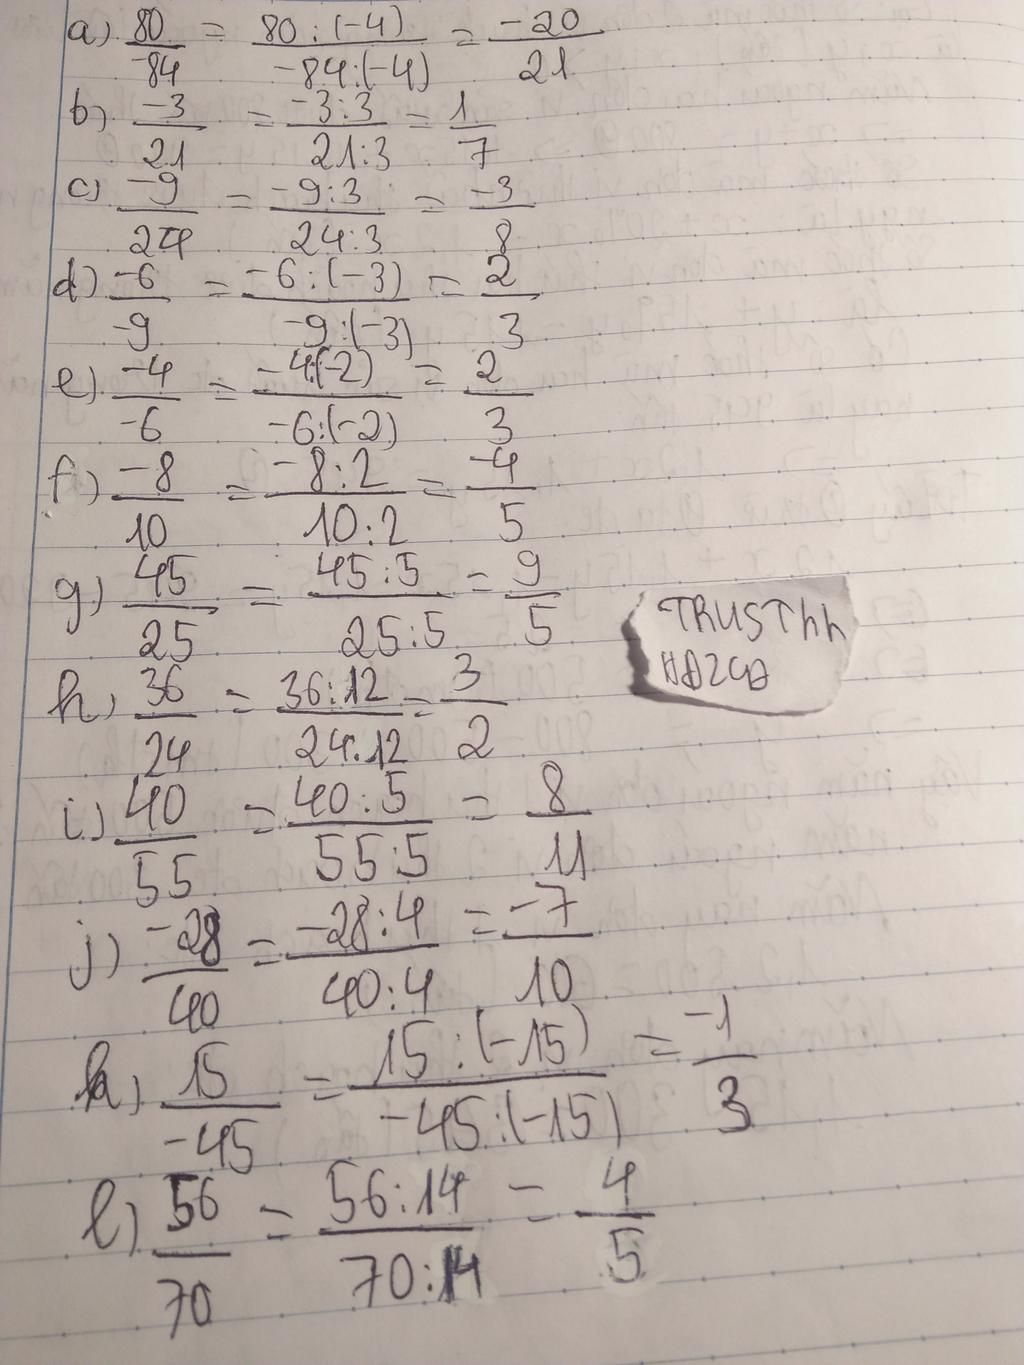 a) 80/-84 = 80:(-4)/-84:(-4) = -20/21
b) -3/21 = -3:3/21:3 = 1/7
c) -9/24 = -9:3/24:3 = -3/8
d) -6/-9 = -6:(-3)/-9:(-3) = 2/3
e) -4/-6 = -4:(-2)/-6:(-2) = 2/3
f) -8/10 = -8:2/10:2 = -4/5
g) 45/25 = 45:5/25:5 = 9/5
h) 36/24 = 36:12/24:12 = 3/2
i) 40/55 = 40:5/55:5 = 8/11
j) -28/40 = -28:4/40:4 = -7/10
k) 15/-45 = 15:(-15)/-45:(-15) = -1/3
l) 56/70 = 56:14/70:14 = 4/5
TRUSThh